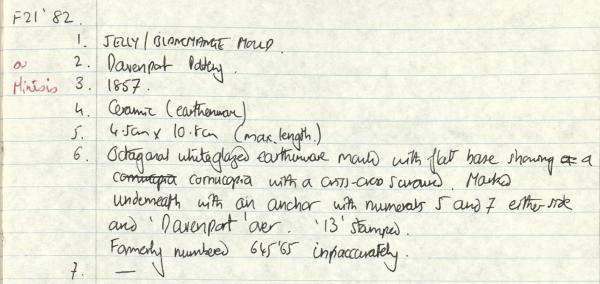 F21'82.
1. JELLY/BLANCMANGE MOULD.
on 2. Davenport Pottery.
Minisis 3. 1857.
4. Ceramic (earthenware)
5. 4.5cm x 10.8cm (max. length.)
6. Octagonal white glazed earthenware mould with flat base showing a
cornucopia with a criss-cross surround. Marked
underneath with an anchor with numerals 5 and 7 either side
and 'Davenport' over. '13' stamped.
Formerly numbered 645'65 inaccurately.
7. —